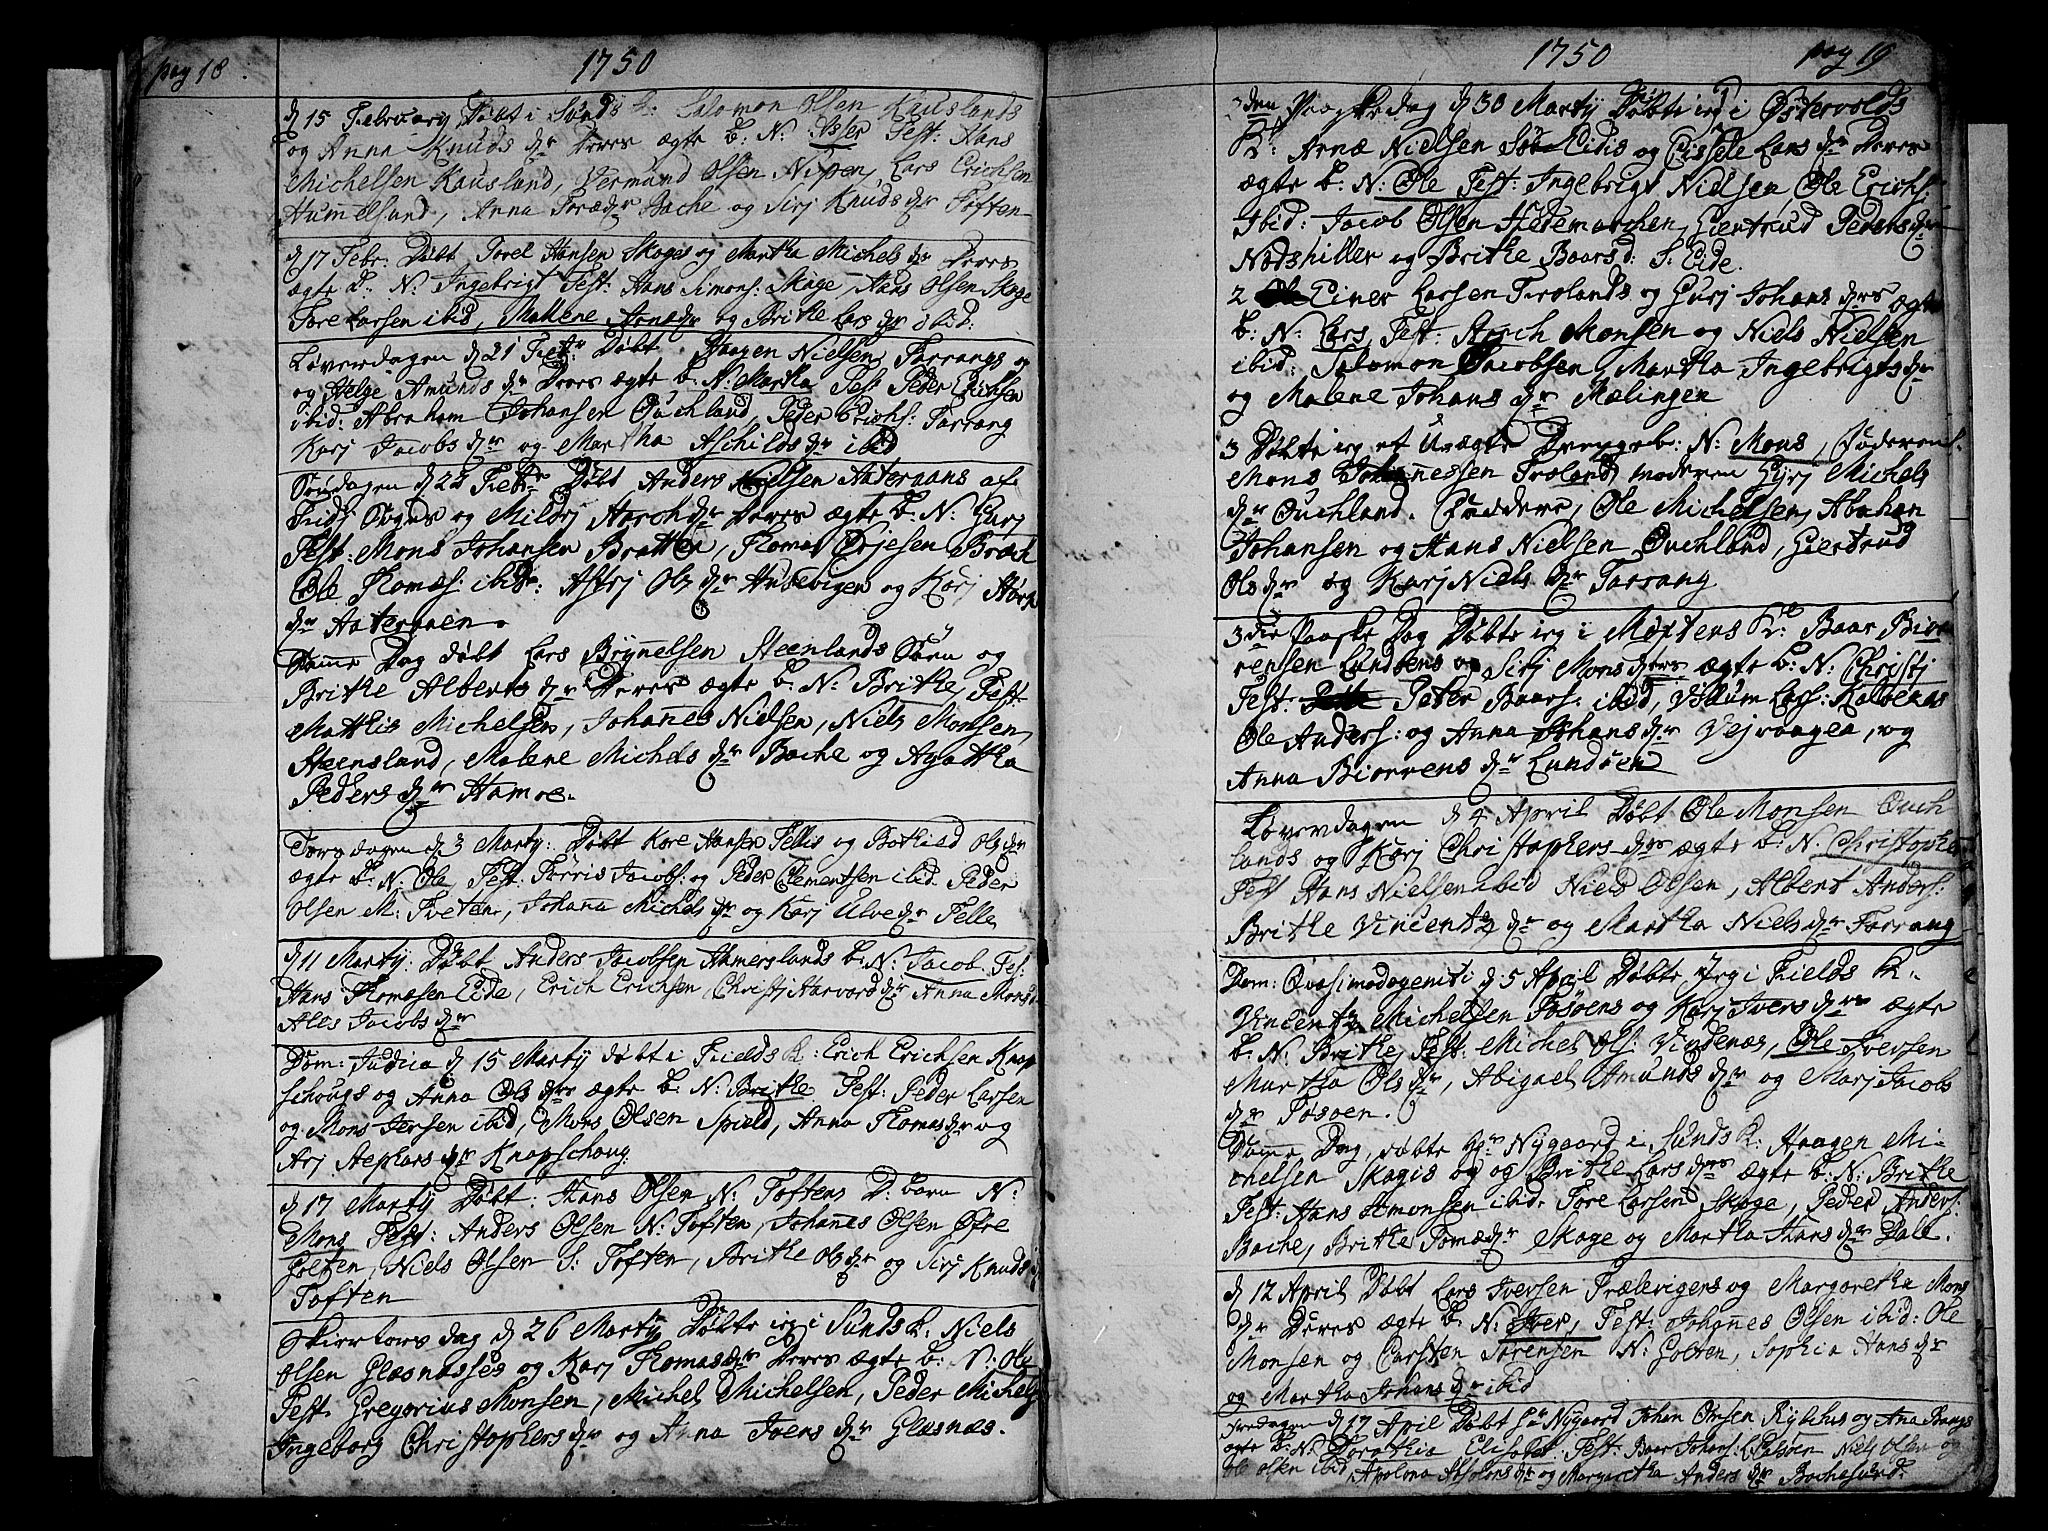 pag 18
1750
d 15 February Døbt i Sunds K: Salomon Olsen Kauslands
og Anna Knuds dr Deres ægte b: N: Test: Hans
Michelsen Kausland, Vermund Olsen Nipen, Lars Erichsen
Hummelsund, Anna Toræ dr Bache og Sirj Knuds dr Toften
d 17 Febr: Døbt Torel Hansen Skoges og Martha Michels dr Deres
ægte b: N: Ingebrigt Test: Hans Simons: Skoge, Hans Olsen Skoge
Tore Larsen ibid, Mallene Arne dr og Brithe Lars dr ibid:
Løverdagen d 21 Febr: Døbt Haagen Nielsen Tarrangs
og Helge Amunds dr Deres ægte b: N: Martha Test Peder Erichsen
ibid: Abraham Johansen Ouchland, Peder Erichs: Tarrang
Karj Jacobs dr og Martha Aschilds dr ibid
Søndagen d 22 Febr Døbt Anders Nielsen Aateraans af
Sogns og Mildrj Horch dr Deres ægte b: N: Gurj
Test: Mons Johansen Bratten, Thomas Brach
Ole Thomæs: ibid: Astrj Ols dr og Karj
dr Aateraaen.
Samme Dag døbt Lars Brynnelsen Steenlands Søru og
Brithe Alberts dr Deres ægte b: N: Brithe, Test
Mattis Michelsen, Johannes Nielsen, Niels Monsen
Steensland, Malene Michels dr Bache og Agattha
Peders dr Hamoe.
Torsdagen d 3 Marty: Døbt Kore Hansen Fellis og Bothild Ols dr
ægte b: N: Ole Test: Torris Jacobs: og Peder Clementsen ibid Peder
Olsen M: Tveten, Johanna Michels dr og Karj Ulve dr Felle
d 11 Marty: Døbt Anders Jacobsen Hamerslands b: N: Jacob Tes:
Hans Thomæsen Eide, Erich Erichsen, Christj Harvard dr Anna Mons
Ales Jacobs dr
Dom: Judica d 15 Marty døbt i Fields K: Erich Erichsen Knap
schougs og Anna Ols drs ægte b: N: Brithe Test: Peder Larsen
og Mons Jensen ibid, Mons Olsen Spield, Anna Thomas dr og
Arj Stephans dr Knapschoug
d 17 Marty Døbt: Hans Olsen N: Toftens D: barn N:
Mons Test: Anders Olsen N: Toften, Johanes Olsen Øfre
Golten, Niels Olsen S: Toften, Brithe Ols dr og Sirj Knuds
Toften
Skiertors dag d 26 Marty Døbte ieg i Sunds K: Niels
Olsen Glesnasses og Karj Thomas dr Deres ægte b: N: Ole
Test Gregorius Monsen, Michel Michelsen, Peder Michels
Ingeborg Christophers dr og Anna Ivers dr Glesnæs.
1750
pag 19
2den Paaske dag d 30 Marty Døbte ieg i Østervolds
K: Arnæ Nielsen Eidis og Cissele Lars dr Deres
ægte b: N: Ole Test: Ingebrigt Nielsen, Ole Erichs:
Ibid: Jacob Olsen Hedemarchen, Giertrud Peders dr
Nodshiller og Brithe Baars d: S: Eide.
2 Einer Larsen Trolands og Gurj Johans drs ægte
b: N: Lars, Test. Horch Monsen og Niels Nielsen
ibid: Salomon Jacobsen, Martha Ingebrigts dr
og Malene Johans dr Mælingen
3 Døbte ieg et Uægte Drengeb: N: Mons, Faderen
Mons Johannessen Troland, moderen Gyrj Michels
dr Ouchland. Faddere, Ole Michelsen, Abahan
Johansen og Hans Nielsen Ouchland, Giertrud
Ols dr og Karj Niels dr Tarrang
3die Paaske Dag Døbte ieg i Møstens K: Baar Bior
rensen Lundøens og Sirj Mons drs ægte b: N: Christj
Test: Peter Baars: ibid, Villum Lars: Kalvenæs
Ole Anders: og Anna Johans dr Vejvaagen, og
Anna Biorrens dr Lundøen
Løverdagen d 4 April Døbt Ole Monsen Ouch
lands og Karj Christophers drs ægte b: N. Christopher
Test Hans Nielsen ibid Niels Olsen, Albert Anders:
Brithe Vincentz dr og Martha Niels dr Tarrang
Dom: Qvasimodogeniti d 5 April Døbte Jeg i Fields K:
Vincentz Michelsen Tosøens og Karj Ivers drs ægte
b: N: Brithe, Test: Michel Ols: Vindenæs, Ole Iversen
Martha Ols dr, Abigael Amunds dr og Marj Jacobs
dr Tosøen.
Samme Dag, døbte Hr Nygaard i Sunds K: Haagen Mi
chelsen Skogis og og Brithe Lars drs ægte b: N: Brithe
Test: Hans Simonsen ibid. Tore Larsen Skoge, Peder Anders:
Bache, Brithe Tomæ dr Skoge og Martha Hans dr Dale.
d 12 April Døbt Lars Iversen Trælevigens og Margaretha Mons
dr Deres ægte b: N: Iver, Test: Johannes Olsen ibid: Ole
Monsen og Carsten Sørensen N: Golten, Sophia Hans dr
og Martha Johans dr ibid
Fredagen d 17 April Døbt Hr Nygaard Johan Omsen og Ana
ægte b: N: Dorothia Elisabet Test: Baar Johans: Niels Olsen og
Ole Olsen ibid, Apelona Absolons dr og Margaretha Anders dr Bachesund: